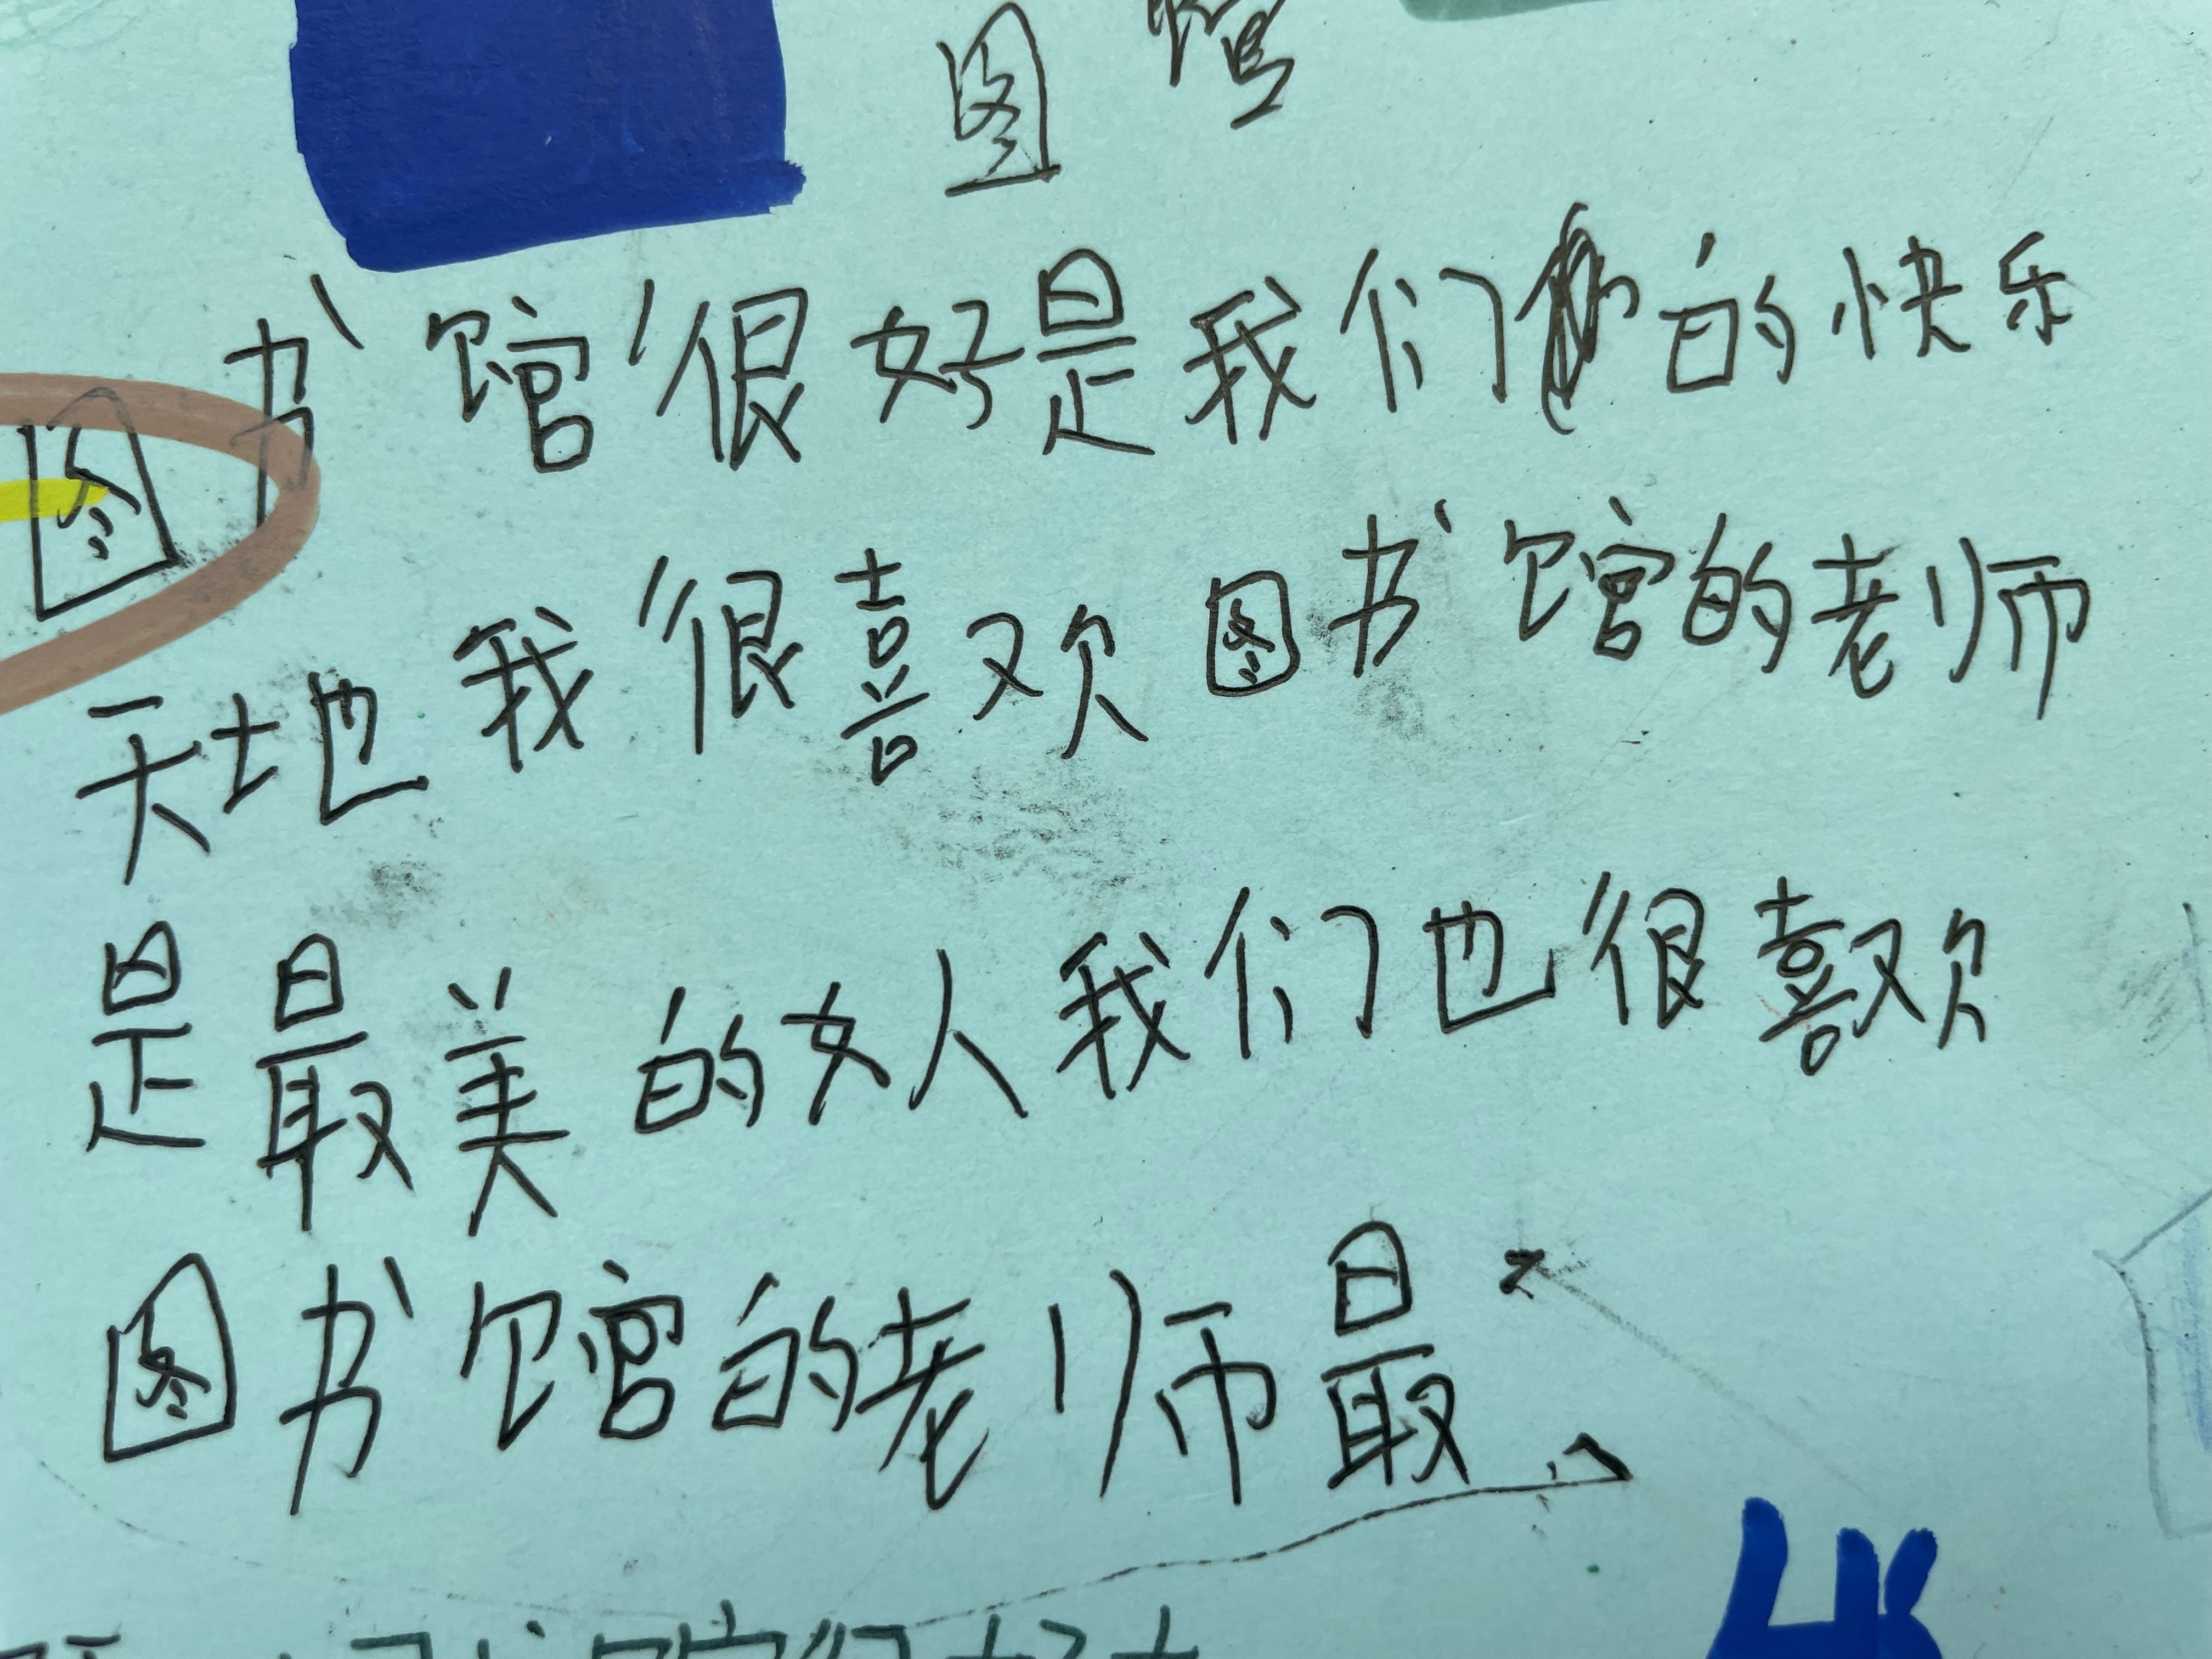 图 馆
图书馆很好是我们的快乐
天地我很喜欢图书馆的老师
是最美的女人我们也很喜欢
图书馆的老师最